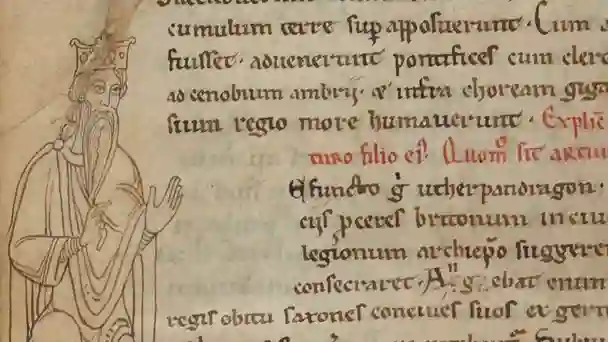 cumulum terre sup apposuerunt. Cum
fuisset. aduenerunt pontifices cum cler
ad cenobium ambrij. & infra choream giga
tium regio more humauerunt. Explic
turo filio ei⁹. Quom̄ sit artu
efuncto g̉ utherpandragon.
cijs ꝓceres britonum in ciu
legionum archiep̄o suggere
consecraret. Angebat enim
regis obitu saxones conciues suos ex ger